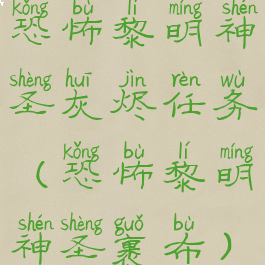 kǒng bù lí míng shén
恐怖黎明神
shèng huī jìn rèn wù
圣灰烬任务
kǒng bù lí míng
（恐怖黎明
shén shèng guǒ bù
神圣裹布）